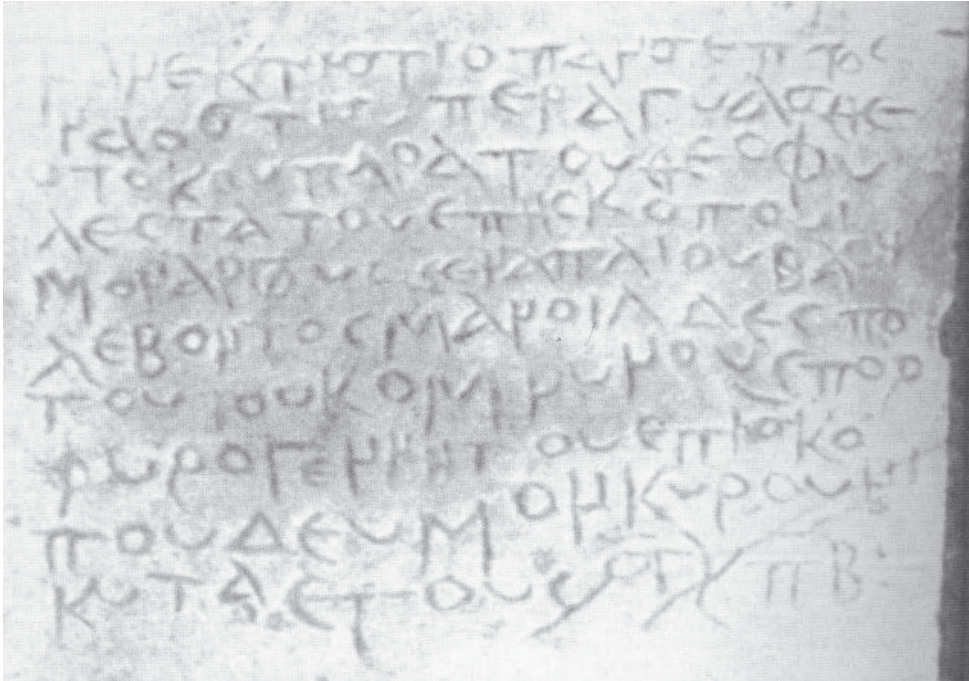 ΝΕΚΤΙΣΤΙ Ο ΠΑΝΣΕΠΤΟΣ
ΝΑΟΣ ΤΙΣ ΠΕΡΑΓΥΑΣ ΘΕ
ΟΤΟΚΟΥ ΠΑΡΑ ΤΟΥ ΘΕΟΦΥ
ΛΕΣΤΑΤΟΥ ΕΠΗΣΚΟΠΟΥ Ι
ΜΟΝ ΑΡΓΟΥΣ ΚΕ ΝΑΠΛΙΟΥ ΒΑΣΗ
ΛΕΒΟΝΤΟΣ ΜΑΝΟΙΛ ΔΕΣΠΟ
ΤΟΥ ΤΟΥ ΚΟΜΝΥΝΟΥ Ϛ ΠΟΡ
ΦΥΡΟΓΕΝΝΗΤΟΥ ΕΠΗΣΚΟ
ΠΟΥ ΔΕ ΥΜΟΝ ΚΥΡΟΥ ΝΙ
ΚΥΤΑ ΕΤΟΥΣ ϚΧΠΒ